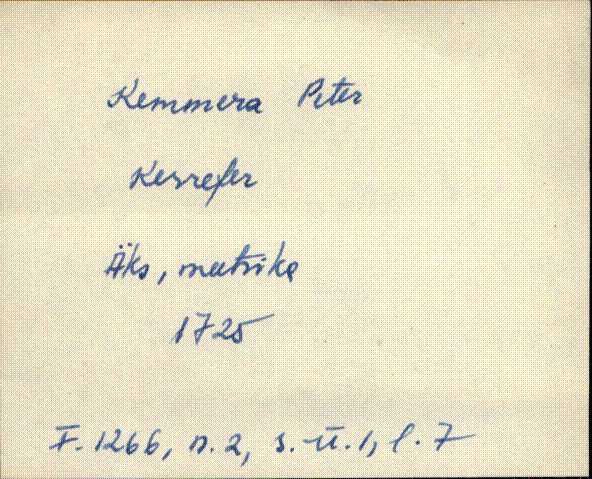 Kemmera Peter
Kerrefer
Äks, meetrika
1725
F. 1266, n. 2, s.-ü. 1, l. 7